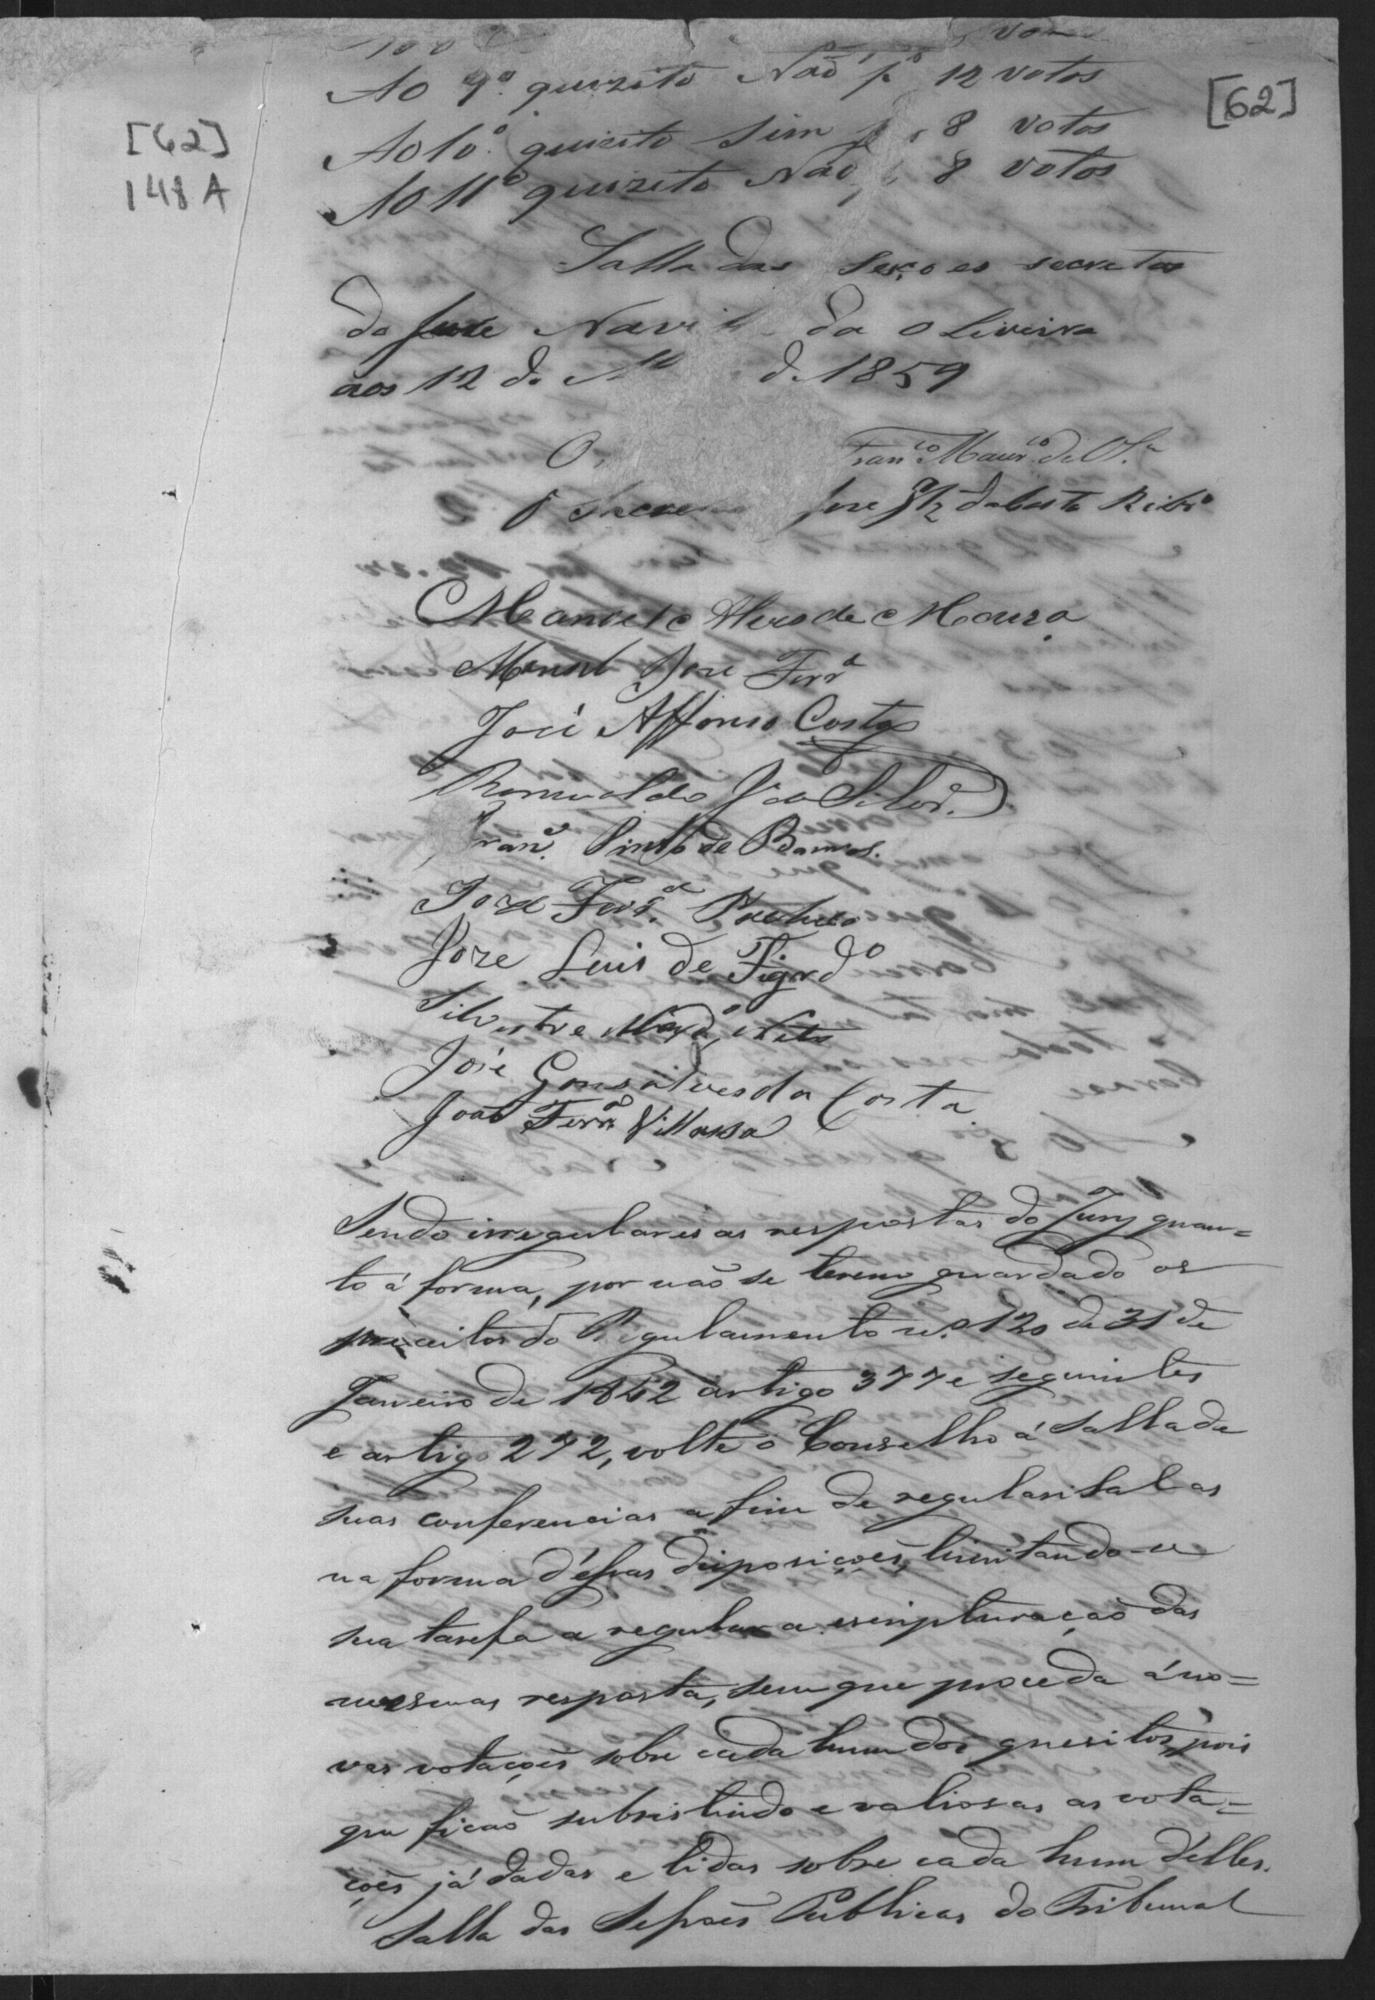 votos
Ao 9º. quizito Não pr 12 votos
[62]
[62]
148 A
Ao 10º. quizito Sim p r 8 votos
Ao 11º quizito Não 8 votos
Salla das Seções secretas
do Jure Navi da Oliveira
aos 12 de M de 1859
O Franco. Maurco. de Olra
O Secre Jose Glz da Costa Ribro
Manoel Alves de Moura
Manoel Jose Ferra
José Affonso Costa
Romualdo J da Silva.
Franco. Pinto de Barros.
Joze Ferra. Pacheco
Joze Luis de Figrdo
Silvestre Neto
José Gonsalves da Costa
João Ferra Villassa
Sendo irregulares as respostas do Jury quan=
to á forma, por não se terem guardado os
preceitos do Regulamento nº 120 de 31 de
Janeiro de 1842 artigo 377 e seguintes
e artigo 272, volte o Conselho á Salla de
suas conferencias a fim de regularisal-as
na forma d'éssas disposições, limitando-se
sua tarefa a regular a escripturação das
mesmas resposta, sem que proceda á no=
vas votações sobre cada hum dos quesitos, pois
que ficão subsistindo e valiosas as vota=
ções já dadas e lidas sobre cada hum d'elles.
Salla das Sessões Publicas do Tribunal